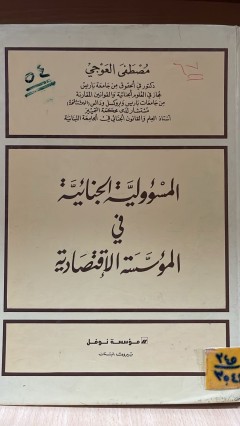 ٥٤
مصطفى العوجي
دكتور في الحقوق من جامعة باريس
مجاز في العلوم الجنائية والقوانين المقارنة
من جامعات باريس وبروكسل
مستشار لدى محكمة التمييز
أستاذ العلم والقانون الجنائي في الجامعة اللبنانية
المسؤولية الجنائية
في
المؤسسة الاقتصادية
مؤسسة نوفل
بيروت لبنان
٢٤٥